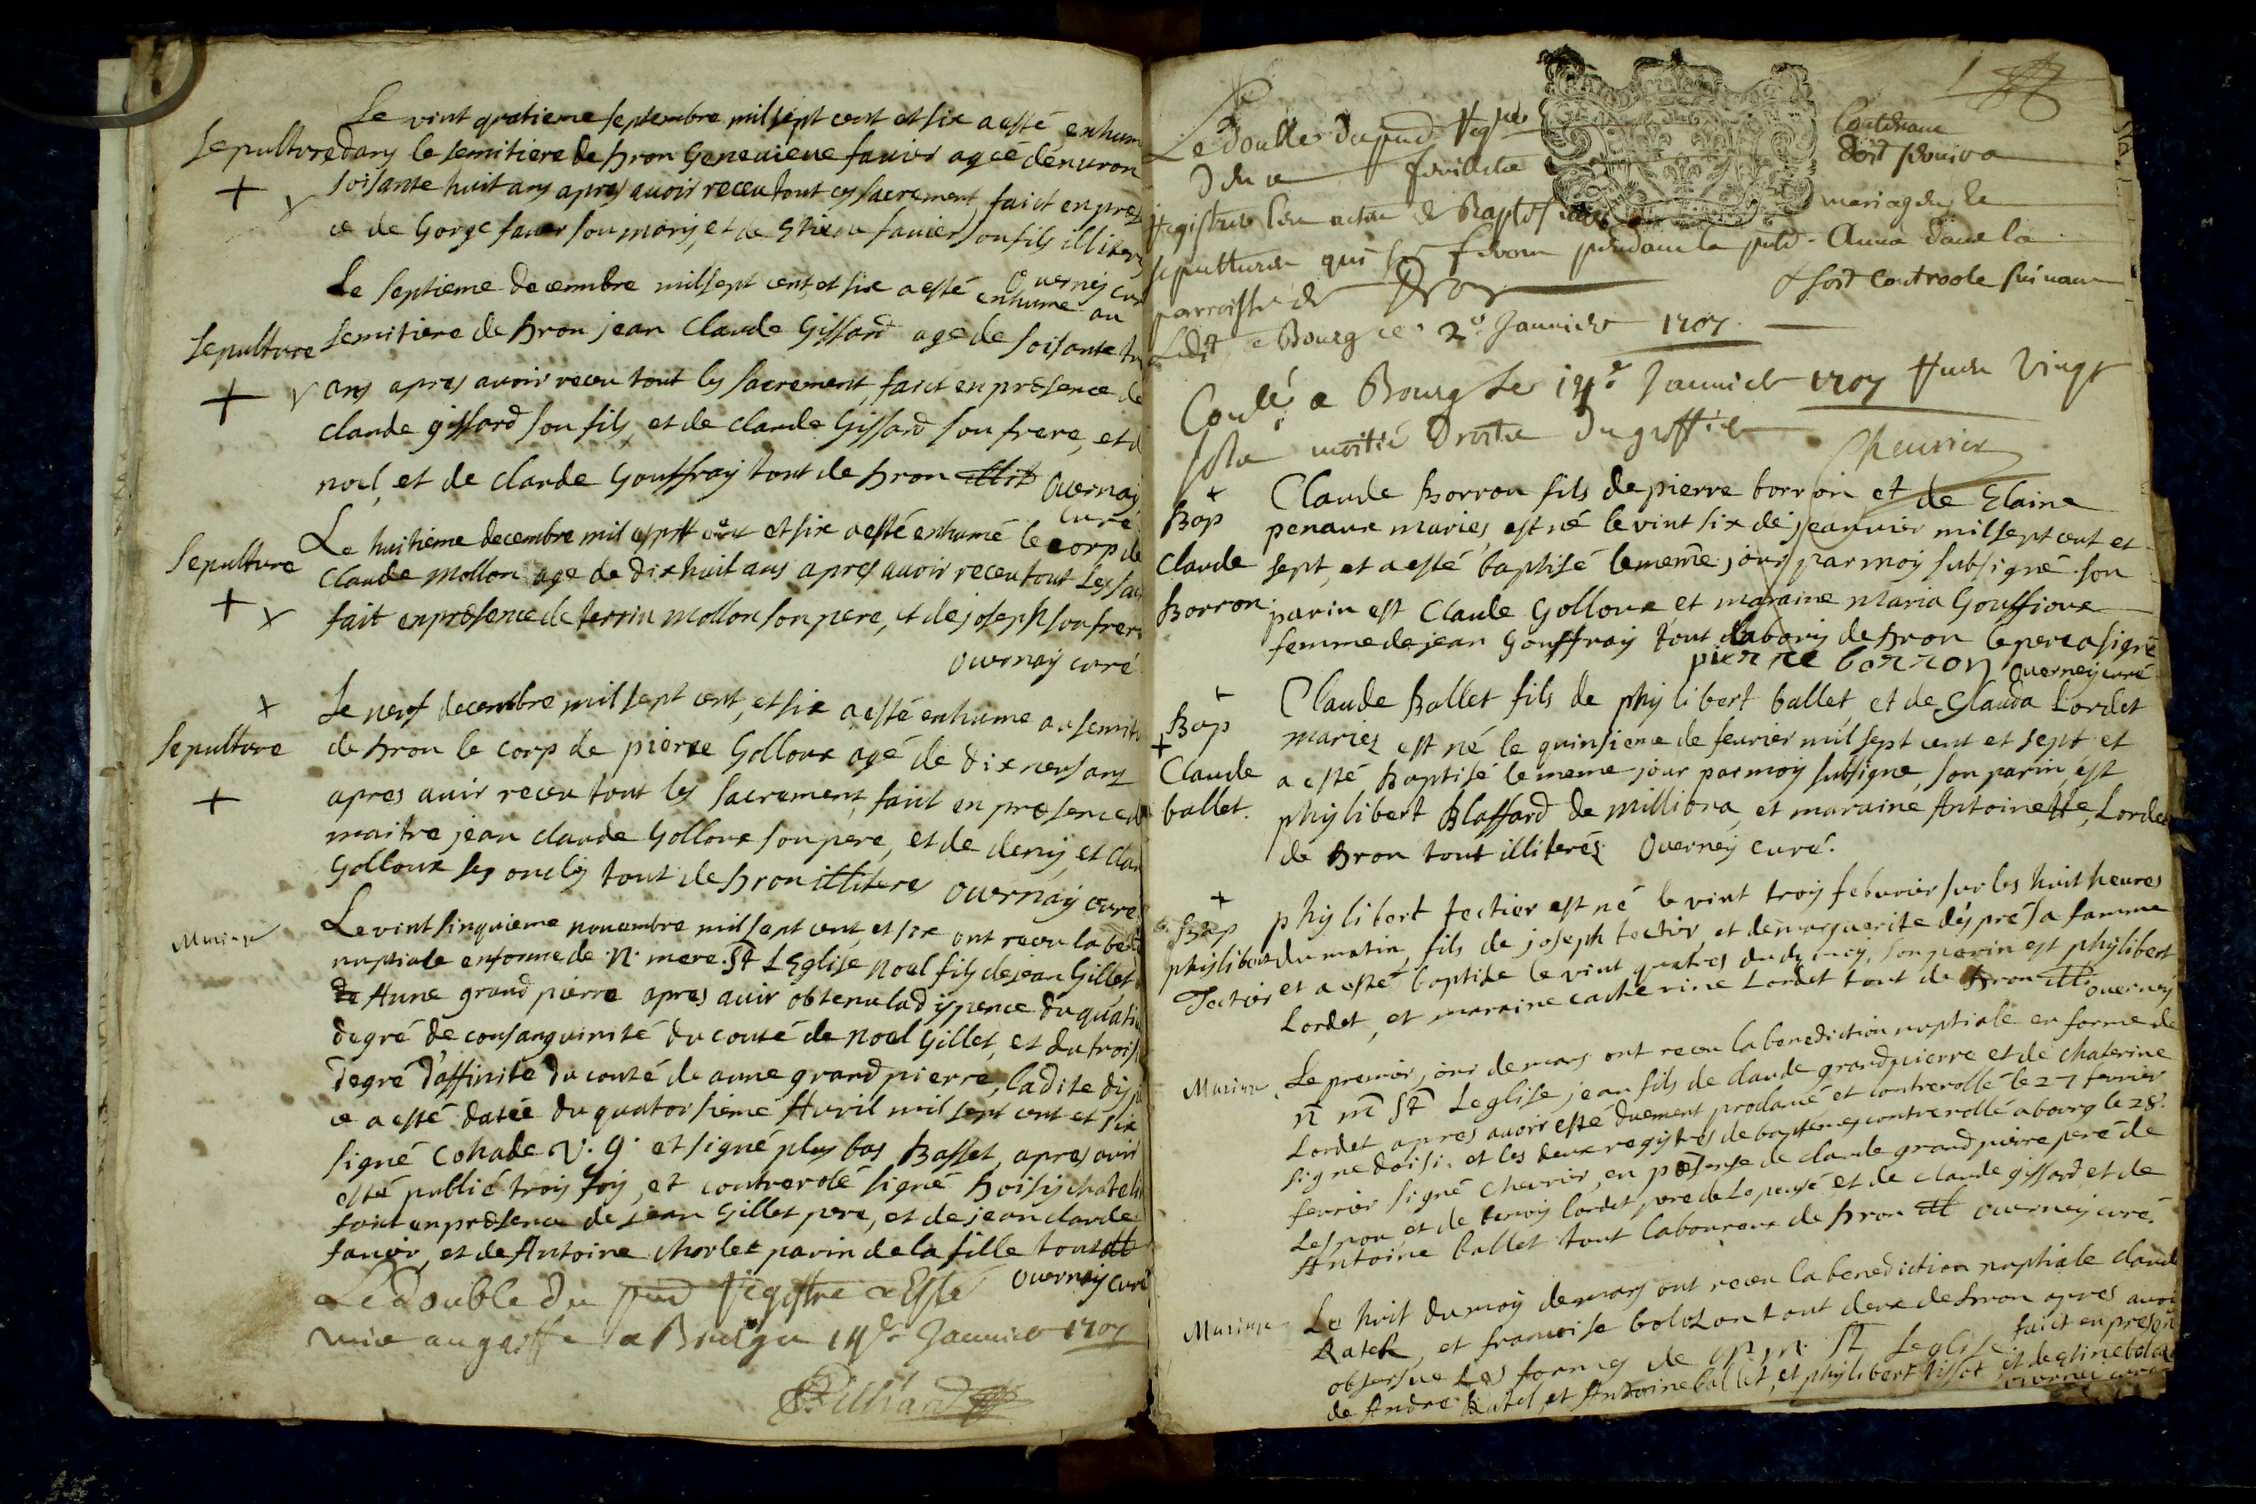 Le vint quatieme septembre mil sept cent et six a esté enhum
Sepulture dans le semitiere de Bron Genevieve favier ageé denviron
soisante huit ans apres avoir receu tout ces sacrement, faict en pres
ce de Gorge favier son mary, et de favier son fils illiters
Overney curé
Le septieme decembre mil sept cent, et six a esté enhume au
Sepulture semitiere de Bron jean Claude Gissard age de soisante
ans apres avoir receu tout les sacrement, faict en presence de
claude gissard son fils, et de claude Gissard son frere, et d
noel, et de claude Gouffray tout de Bron illit Overnay
curé
Le huitieme decembre mil sept cent et six a esté enhumé le corp de
Sepulture Claude Mollon age de dix huit ans apres avoir receu tout les sac
fait en presence de perrin Mollon son pere, et de joseph son frere
overnay curé
Le neuf decembre mil sept cent, et six a esté enhume au semiti
Sepulture de Bron le corp de pierre Golloux agé de dix neuf ans
apres avir receu tout les sacrement, faict en presence de
maitre jean claude Golloux son pere, et de denis, et clau
Golloux ses oncles tout de Bron illiteres overnay curé
Mariage Le vint sinquieme novembre mil sept cent, et six ont receu la bene
nuptiale en forme de N. mere St. L'Eglise Noel fils de jean Gillet,
de Anne grand pierre apres avir obtenu la dispence du quatri
degré de consanguinité du couté de Noel Gillet, et du troisi
degré d'affinité du couté de anne grand pierre, ladite disp
ce a esté datée du quatorsieme Avril mil sept cent et six
signé Cohade V. g. et signé plus bas Basset, apres avir
esté publié trois fois, et contrerolé signé Boisy chatel
faict en presence de jean Gillet pere, et de jean claude
favier, et de Antoine Chorlet parin de la fille tout ill
overnay curé
Le double du pnt Registre a Esté
mis au greffe a Bourg ce 14e Janvier 1707

1
Le double du pnt Regtre
feuillets
Contenant
doit servir a
Registrer les actes de Baptesmes mariages, et
sepultures qui se feront pendant la pnte Année dans la
parroisse de Bron & soit Controole suivant
Ledit a Bourg ce 2e Janvier 1707
Conlé a Bourg le 14e Janvier 1707 Receu Vingt
sols moitié Droits du greffier
Chevrier
Bap Claude Borron fils de pierre borron et de Elaine
penaux maries, est né le vint six de jeanvier mil sept cent et
Claude sept, et a esté baptisé le meme jour par moy subsigné son
Borron parin est Claude Golloux et maraine Maria Gouffioux
femme de jean Gouffray tout de Bron le pere a signé
pierre borron Overney curé
Bap Claude Ballet fils de phylibert ballet et de Clauda Lordet
mariez est né le quinsieme de fevrier mil sept cent et sept et
Claude a esté Baptisé le meme jour par moy subsigne, son parin est
ballet. phylibert Blaffard de milliona, et maraine Antoinette, Lordet
de Bron tout illiterés Overney curé.
Bap phylibert tectier est né le vint trois feburier sur les huit heures
phylibert du matin, fils de joseph tectier, et de marguerite dépré sa famme
Tectier et a esté baptise le vint quatres dudy moy, son parin est phylibert
Lordet, et maraine catherine Lordet tout de Bron ill. overney
Mariage Le premier jour de mars ont receu la benediction nuptiale en forme de
n m St Leglise jean fils de claude grandpierre et de chaterine
Lordet apres avoir esté duement proclamé et contrerollé le 27 fevrier
signé Boisi, et les deux registres de baptemes contrerollé a bourg le 28.
fevrier signé Chevrier, en presense de claude grand pierre pere de
Lespou et de lordet pere de Lepousé et de claude gissard et de
Antoine ballet tout laboureux de Bron ill overney curé.
Mariage Le huit du moy de mars ont receu la benediction nuptiale claude
Ratel, et francoise bolozon tout deux de Bron apres avoir
observe Les formes de n. m. St Leglise faict en presen
de Andre Ratel, et Antoine ballet, et phylibert tissot et de
overney curé